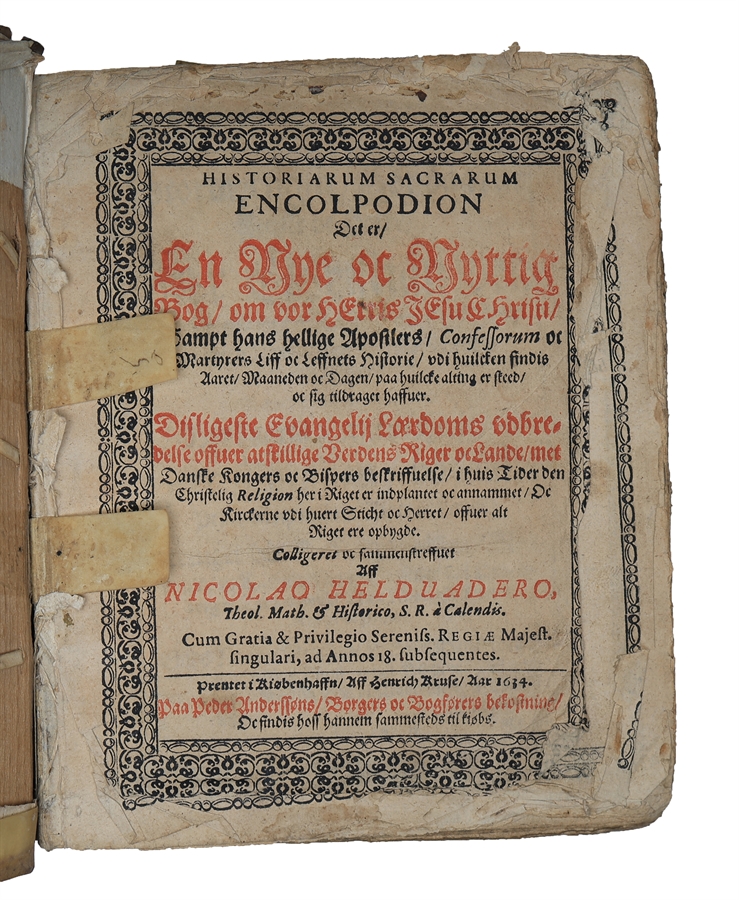 HISTORIARUM SACRARUM
ENCOLPODION
Det er/
En Nye oc Nyttig
Bog/ om vor HErris JEsu CHristi/
Sampt hans hellige Apostlers/ Confessorum oc
Martyrers Liff oc Leffnets Historie/ vdi huilcken findis
Aaret/ Maaneden oc Dagen/ paa huilcke alting er skeed/
oc sig tildraget haffuer.
Disligeste Evangelij Lærdoms vdbre-
delse offuer atskillige Verdens Riger oc Lande/ met
Danske Kongers oc Bispers beskriffuelse/ i huis Tider den
Christelig Religion her i Riget er indplantet oc annammet/ Oc
Kirckerne vdi huert Sticht oc Herret/ offuer alt
Riget ere opbygde.
Colligeret oc sammenskreffuet
Aff
NICOLAO HELDUADERO,
Theol. Math. & Historico, S. R. à Calendis.
Cum Gratia & Privilegio Sereniss. REGIÆ Majest.
singulari, ad Annos 18. subsequentes.
Prentet i Kiøbenhaffn/ Aff Henrich Kruse/ Aar 1634.
Paa Peder Anderssøns/ Børgers oc Bogførers bekostning/
Oc findis hoss hannem sammesteds til kiøbs.